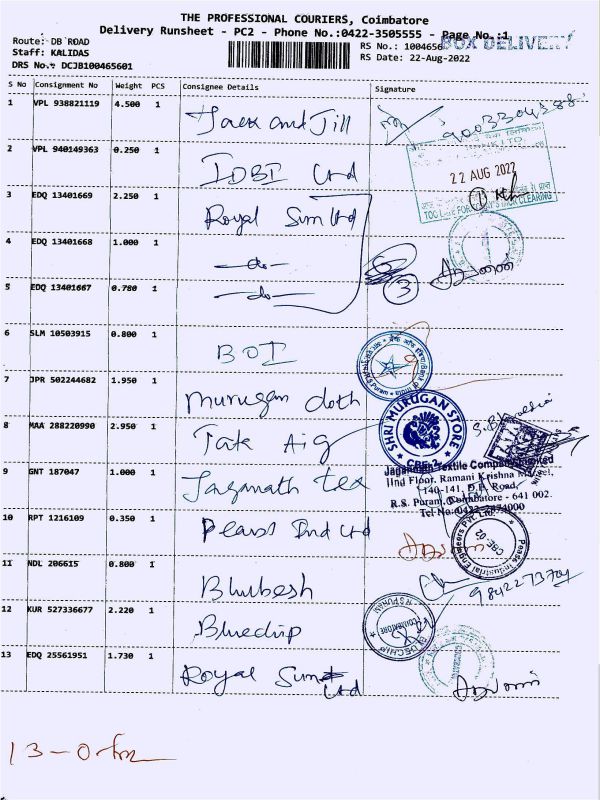 THE PROFESSIONAL COURIERS, Coimbatore
Delivery Runsheet - PC2 - Phone No.:0422-3505555 - Page No.:1
Route: DB ROAD
Staff: KALIDAS
DRS No.: DCJB100465601
RS No.: 1004656
BOX DELIVERY
RS Date: 22-Aug-2022
S No Consignment No Weight PCS Consignee Details Signature
1 VPL 938821119 4.500 1 Jack and Jill
2 VPL 940149363 0.250 1 IDBI Ltd
22 AUG 2022
3 EDQ 13401669 2.250 1 Royal Sun Ltd
4 EDQ 13401668 1.000 1 -do-
5 EDQ 13401667 0.780 1 -do- 3
6 SLM 10503915 0.800 1 BOI
7 JPR 502244682 1.950 1 Murugan cloth
SHRI MURUGAN STORE
CBE-2
8 MAA 288220990 2.950 1 Tata Aig
9 GNT 187047 1.000 1 Jaganath tex
IInd Floor, Ramani Krishna
140-141, D.B. Road,
R.S. Puram, Coimbatore - 641 002.
Tel No:0422-2474000
10 RPT 1216109 0.350 1 Pleass Ind Ltd
CBE-02
11 NDL 206615 0.800 1 Bhubesh
9842273704
12 KUR 527336677 2.220 1 Bluechip
13 EDQ 25561951 1.730 1 Royal Sun Ltd